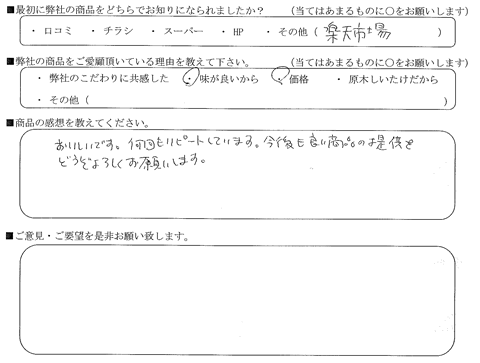 ■最初に弊社の商品をどちらでお知りになられましたか？　（当てはあまるものに〇をお願いします）
・ 口コミ　・ チラシ　・ スーパー　・ HP　・ その他（ 楽天市場　）
■弊社の商品をご愛顧頂いている理由を教えて下さい。　（当てはあまるものに〇をお願いします）
・ 弊社のこだわりに共感した　・ 味が良いから　・ 価格　・ 原木しいたけだから
・ その他（　）
■商品の感想を教えてください。
おいしいです。何回もリピートしています。今後も良い商品の提供を
どうぞよろしくお願いします。
■ご意見・ご要望を是非お願い致します。